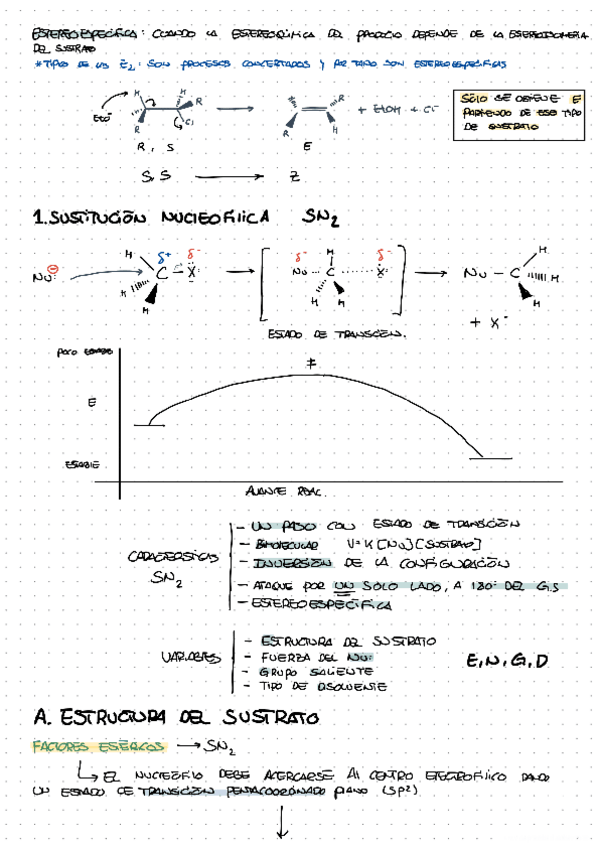 ESTEREOESPECÍFICA: CUANDO LA ESTEREOQUÍMICA DEL PRODUCTO DEPENDE DE LA ESTEREOISOMERÍA
DEL SUSTRATO
*TIPO DE LAS E2: SON PROCESOS CONCERTADOS Y POR TANTO SON ESTEREOESPECÍFICAS
H H R EtO⁻ R Cl
R H R H + EtOH + Cl⁻
SÓLO SE OBTIENE E
PARTIENDO DE ESE TIPO
DE SUSTRATO
R, S E
S, S → Z
1. SUSTITUCIÓN NUCLEOFÍLICA SN2
Nu:⊖ H H H C δ+ – X: δ-
δ- Nu ··· C ······ X: δ- H H H
Nu – C H H H
+ X⁻
ESTADO DE TRANSICIÓN.
POCO ESTABLE
‡
E
ESTABLE
AVANCE REAC.
CARACTERÍSTICAS
SN2
- UN PASO CON ESTADO DE TRANSICIÓN
- BIMOLECULAR V=K[Nu][SUSTRATO]
- INVERSIÓN DE LA CONFIGURACIÓN
- ATAQUE POR UN SOLO LADO, A 180° DEL G.S
- ESTEREOESPECÍFICA
VARIABLES
- ESTRUCTURA DEL SUSTRATO
- FUERZA DEL Nu:
- GRUPO SALIENTE
- TIPO DE DISOLVENTE
E, N, G, D
A. ESTRUCTURA DEL SUSTRATO
FACTORES ESTÉRICOS → SN2
↳ EL NUCLEÓFILO DEBE ACERCARSE AL CENTRO ELECTROFÍLICO DANDO
UN ESTADO DE TRANSICIÓN PENTACOORDINADO PLANO (SP²)